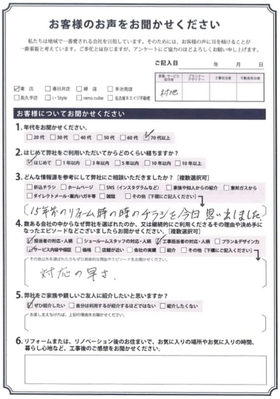 お客様のお声をお聞かせください
私たちは地域で一番愛される会社を目指しています。そのためには、お客様の声に耳を傾けることが
一番重要と考えています。ご多忙とは存じますが、アンケートにご協力のほどよろしくお願い申し上げます。
ご記入日 年 月 日
本店 春日井店 緑店
長久手店 i・Style reno cube 名古屋スミイ不動産
お客様についてお聞かせください
1. 年代をお聞かせください
20代 30代 40代 50代 60代 70代以上
2. はじめて弊社をご利用いただいてからどのくらい経ちますか?
はじめて 1年以内 3年以内 5年以内 10年以内 10年以上
3. どんな情報源を参考にして弊社にご相談いただきましたか?【複数選択可】
折込チラシ ホームページ SNS(インスタグラムなど) ご家族や知人からの紹介 東邦ガスから
ダイレクトメール・案内ハガキ等 雑誌 その他(下欄にご記入ください)
15年前のリフォーム時の時のチラシを今日思い出しました
4. 数ある会社の中からなぜ弊社を選ばれたのか、又は継続的にご利用くださるその理由や決め手に
なったエピソードなどございましたらお聞かせください。【複数選択可】
担当者の対応・人柄 ショールームスタッフの対応・人柄 工事担当者の対応・人柄 プラン&デザイン力
サービス内容や細図 価格 店舗が近い 会社の実績 紹介 その他(下欄にご記入ください)
対応の早さ
5. 弊社をご家族や親しいご友人に紹介したいと思いますか?
ぜひ紹介したい 自分は利用するが紹介するほどではない 紹介したくない
6. リフォームまたは、リノベーション後のお住まいで、お気に入りの場所やお気に入りの時間、
暮らし心地など、工事後のご感想をお聞かせください。